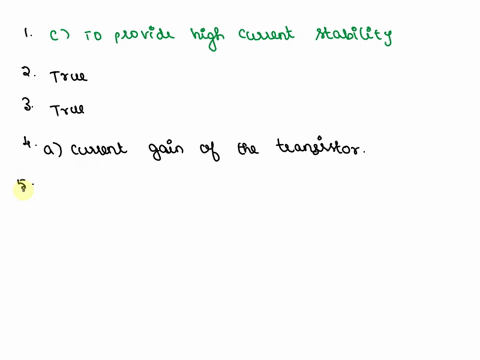 1. c) To provide high current stability
2. True
3. True
4. a) current gain of the transistor.
5.